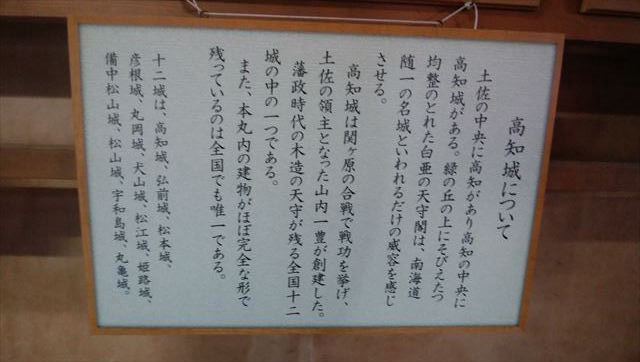 高知城について
土佐の中央に高知があり高知の中央に
高知城がある。緑の丘の上にそびえたつ
均整のとれた白亜の天守閣は、南海道
随一の名城といわれるだけの威容を感じ
させる。
高知城は関ヶ原の合戦で戦功を挙げ、
土佐の領主となった山内一豊が創建した。
藩政時代の木造の天守が残る全国十二
城の中の一つである。
また、本丸内の建物がほぼ完全な形で
残っているのは全国でも唯一である。
十二城は、高知城、弘前城、松本城、
彦根城、丸岡城、犬山城、松江城、姫路城、
備中松山城、松山城、宇和島城、丸亀城。